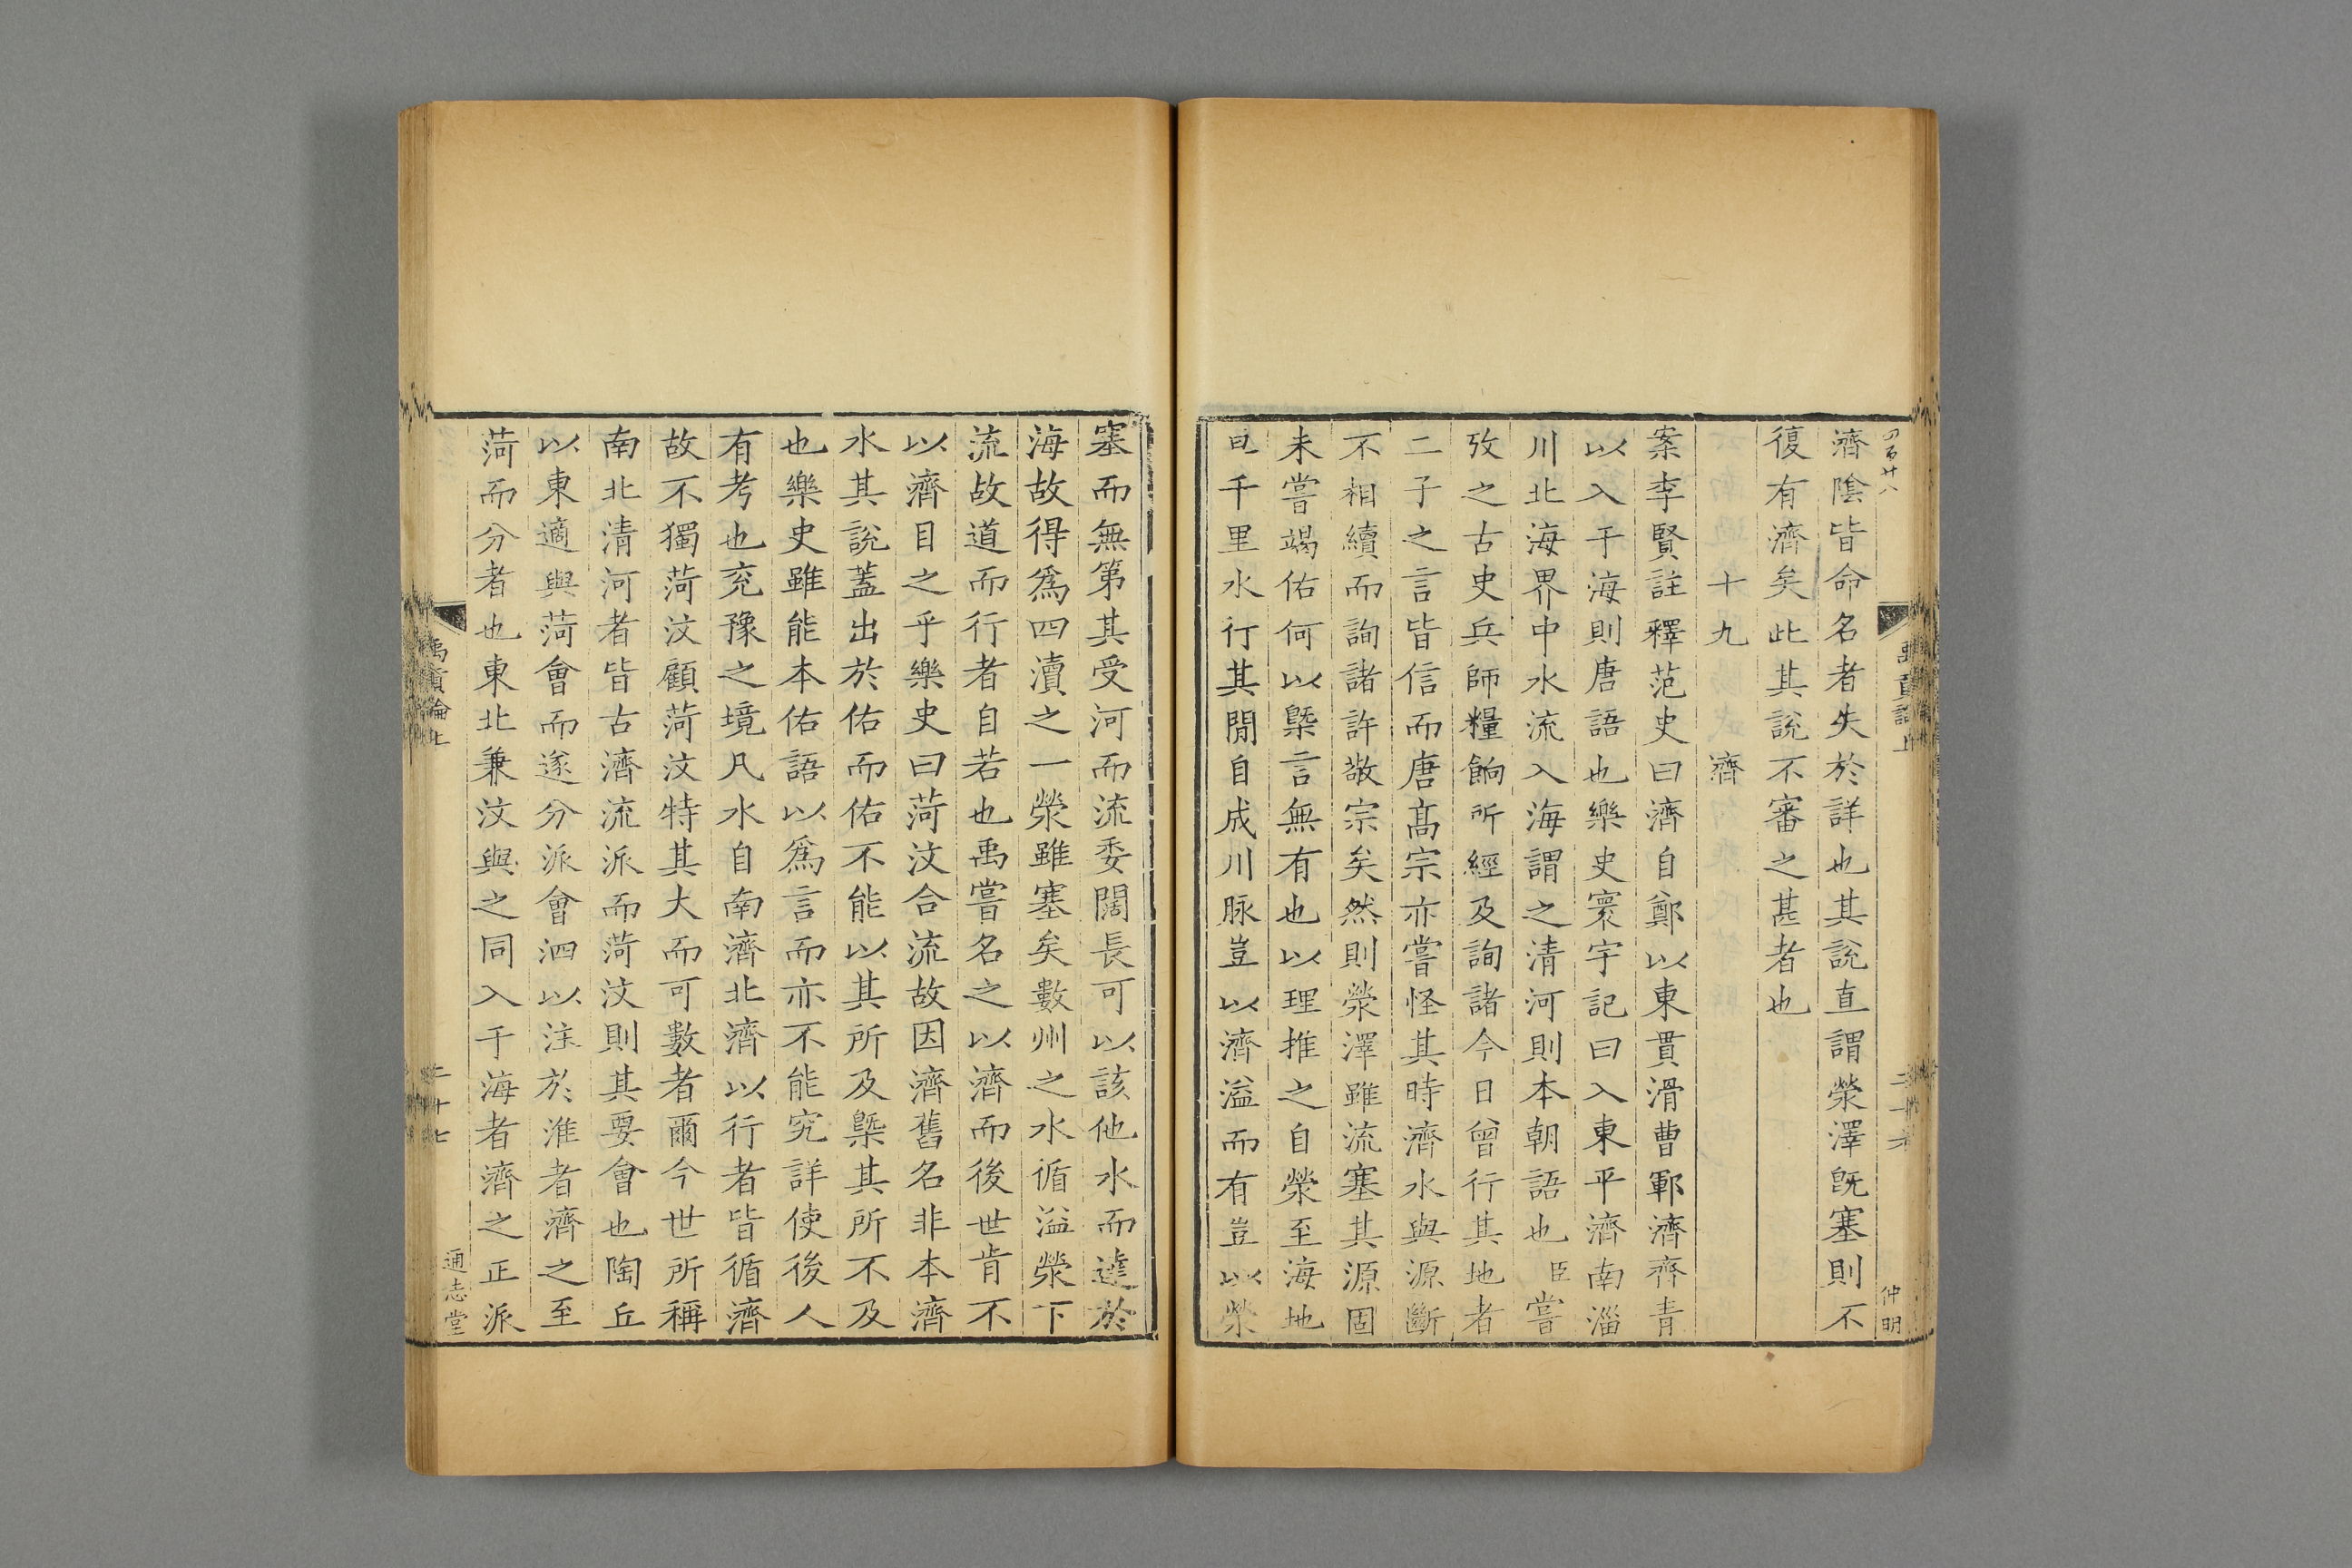 濟陰皆命名者失於詳也其說直謂滎澤既塞則不
復有濟矣此其說不審之甚者也
十九 濟
案李賢註釋范史曰濟自鄭以東貫滑曹鄆濟齊青
以入于海則唐語也樂史寰宇記曰入東平濟南淄
川北海界中水流入海謂之清河則本朝語也臣嘗
攷之古史兵師糧餉所經及詢諸今日曾行其地者
二子之言皆信而唐髙宗亦嘗怪其時濟水與源斷
不相續而詢諸許敬宗矣然則滎澤雖流塞其源固
未嘗竭佑何以槩言無有也以理推之自滎至海地
且千里水行其閒自成川脉豈以濟溢而有豈以滎
塞而無第其受河而流委闊長可以該他水而達於
海故得爲四瀆之一滎雖塞矣數州之水循溢滎下
流故道而行者自若也禹嘗名之以濟而後世肯不
以濟目之乎樂史曰菏汶合流故因濟舊名非本濟
水其說蓋出於佑而佑不能以其所及槩其所不及
也樂史雖能本佑語以爲言而亦不能究詳使後人
有考也兖豫之境凡水自南濟北濟以行者皆循濟
故不獨菏汶顧菏汶特其大而可數者爾今世所稱
南北清河者皆古濟流派而菏汶則其要會也陶丘
以東適與菏會而遂分派會泗以注於淮者濟之至
菏而分者也東北兼汶與之同入于海者濟之正派
禹貢論上
二十七
通志堂
禹貢論上
仲明